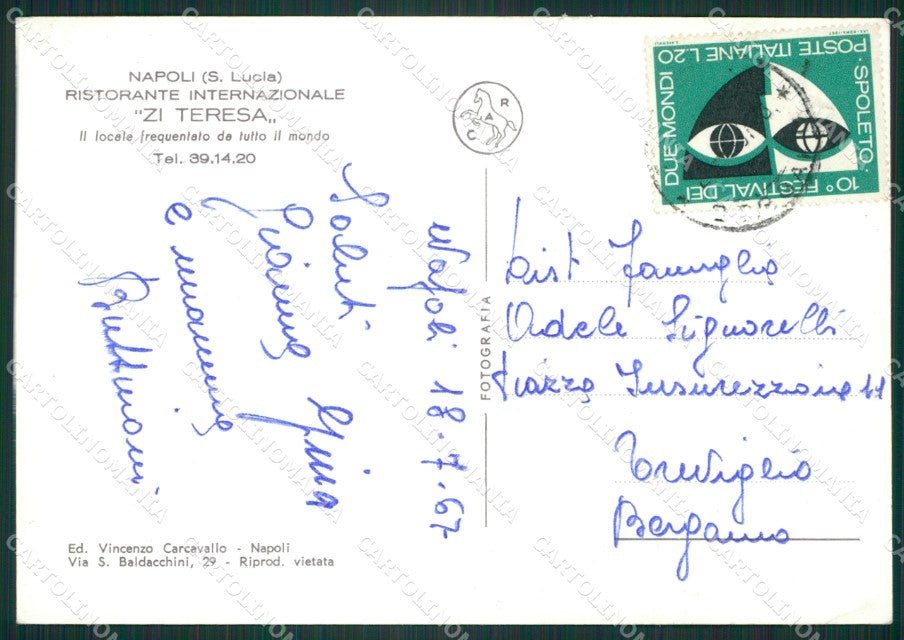 NAPOLI (S. Lucia)
RISTORANTE INTERNAZIONALE
"ZI TERESA„
Il locale frequentato da tutto il mondo
Tel. 39.14.20
CAR
POSTE ITALIANE L.20
SPOLETO
10° FESTIVAL DEI
DUE MONDI
Napoli 18-7-67
Saluti
Gianna Gina
e mamma
Buttinoni
FOTOGRAFIA
Dist famiglia
Adele Signorelli
Piazza Insurrezione 11
Treviglio
Bergamo
Ed. Vincenzo Carcavallo - Napoli
Via S. Baldacchini, 29 - Riprod. vietata
CARTOLINOMANIA